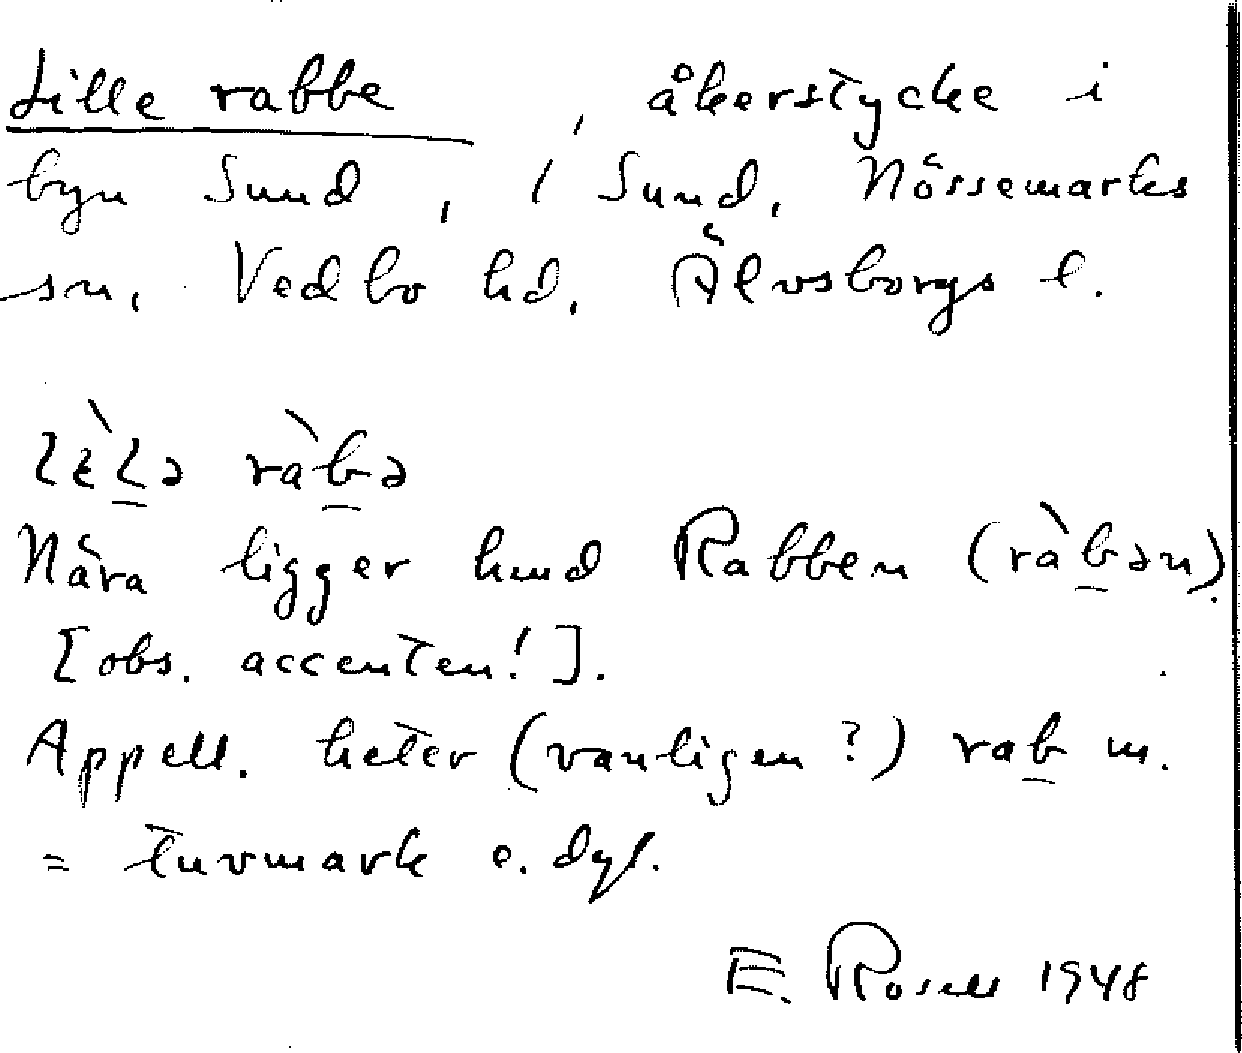 Lille rabbe, åkerstycke i
byn Sund, 1 Sund, Nössemarks
sn, Vedbo hd, Älvsborgs l.
lèlə ràbə
Nära ligger hmd Rabben (ràbən).
[obs. accenten!].
Appell. heter (vanligen?) rab m.
= tuvmark o. dyl.
E. Rosell 1948